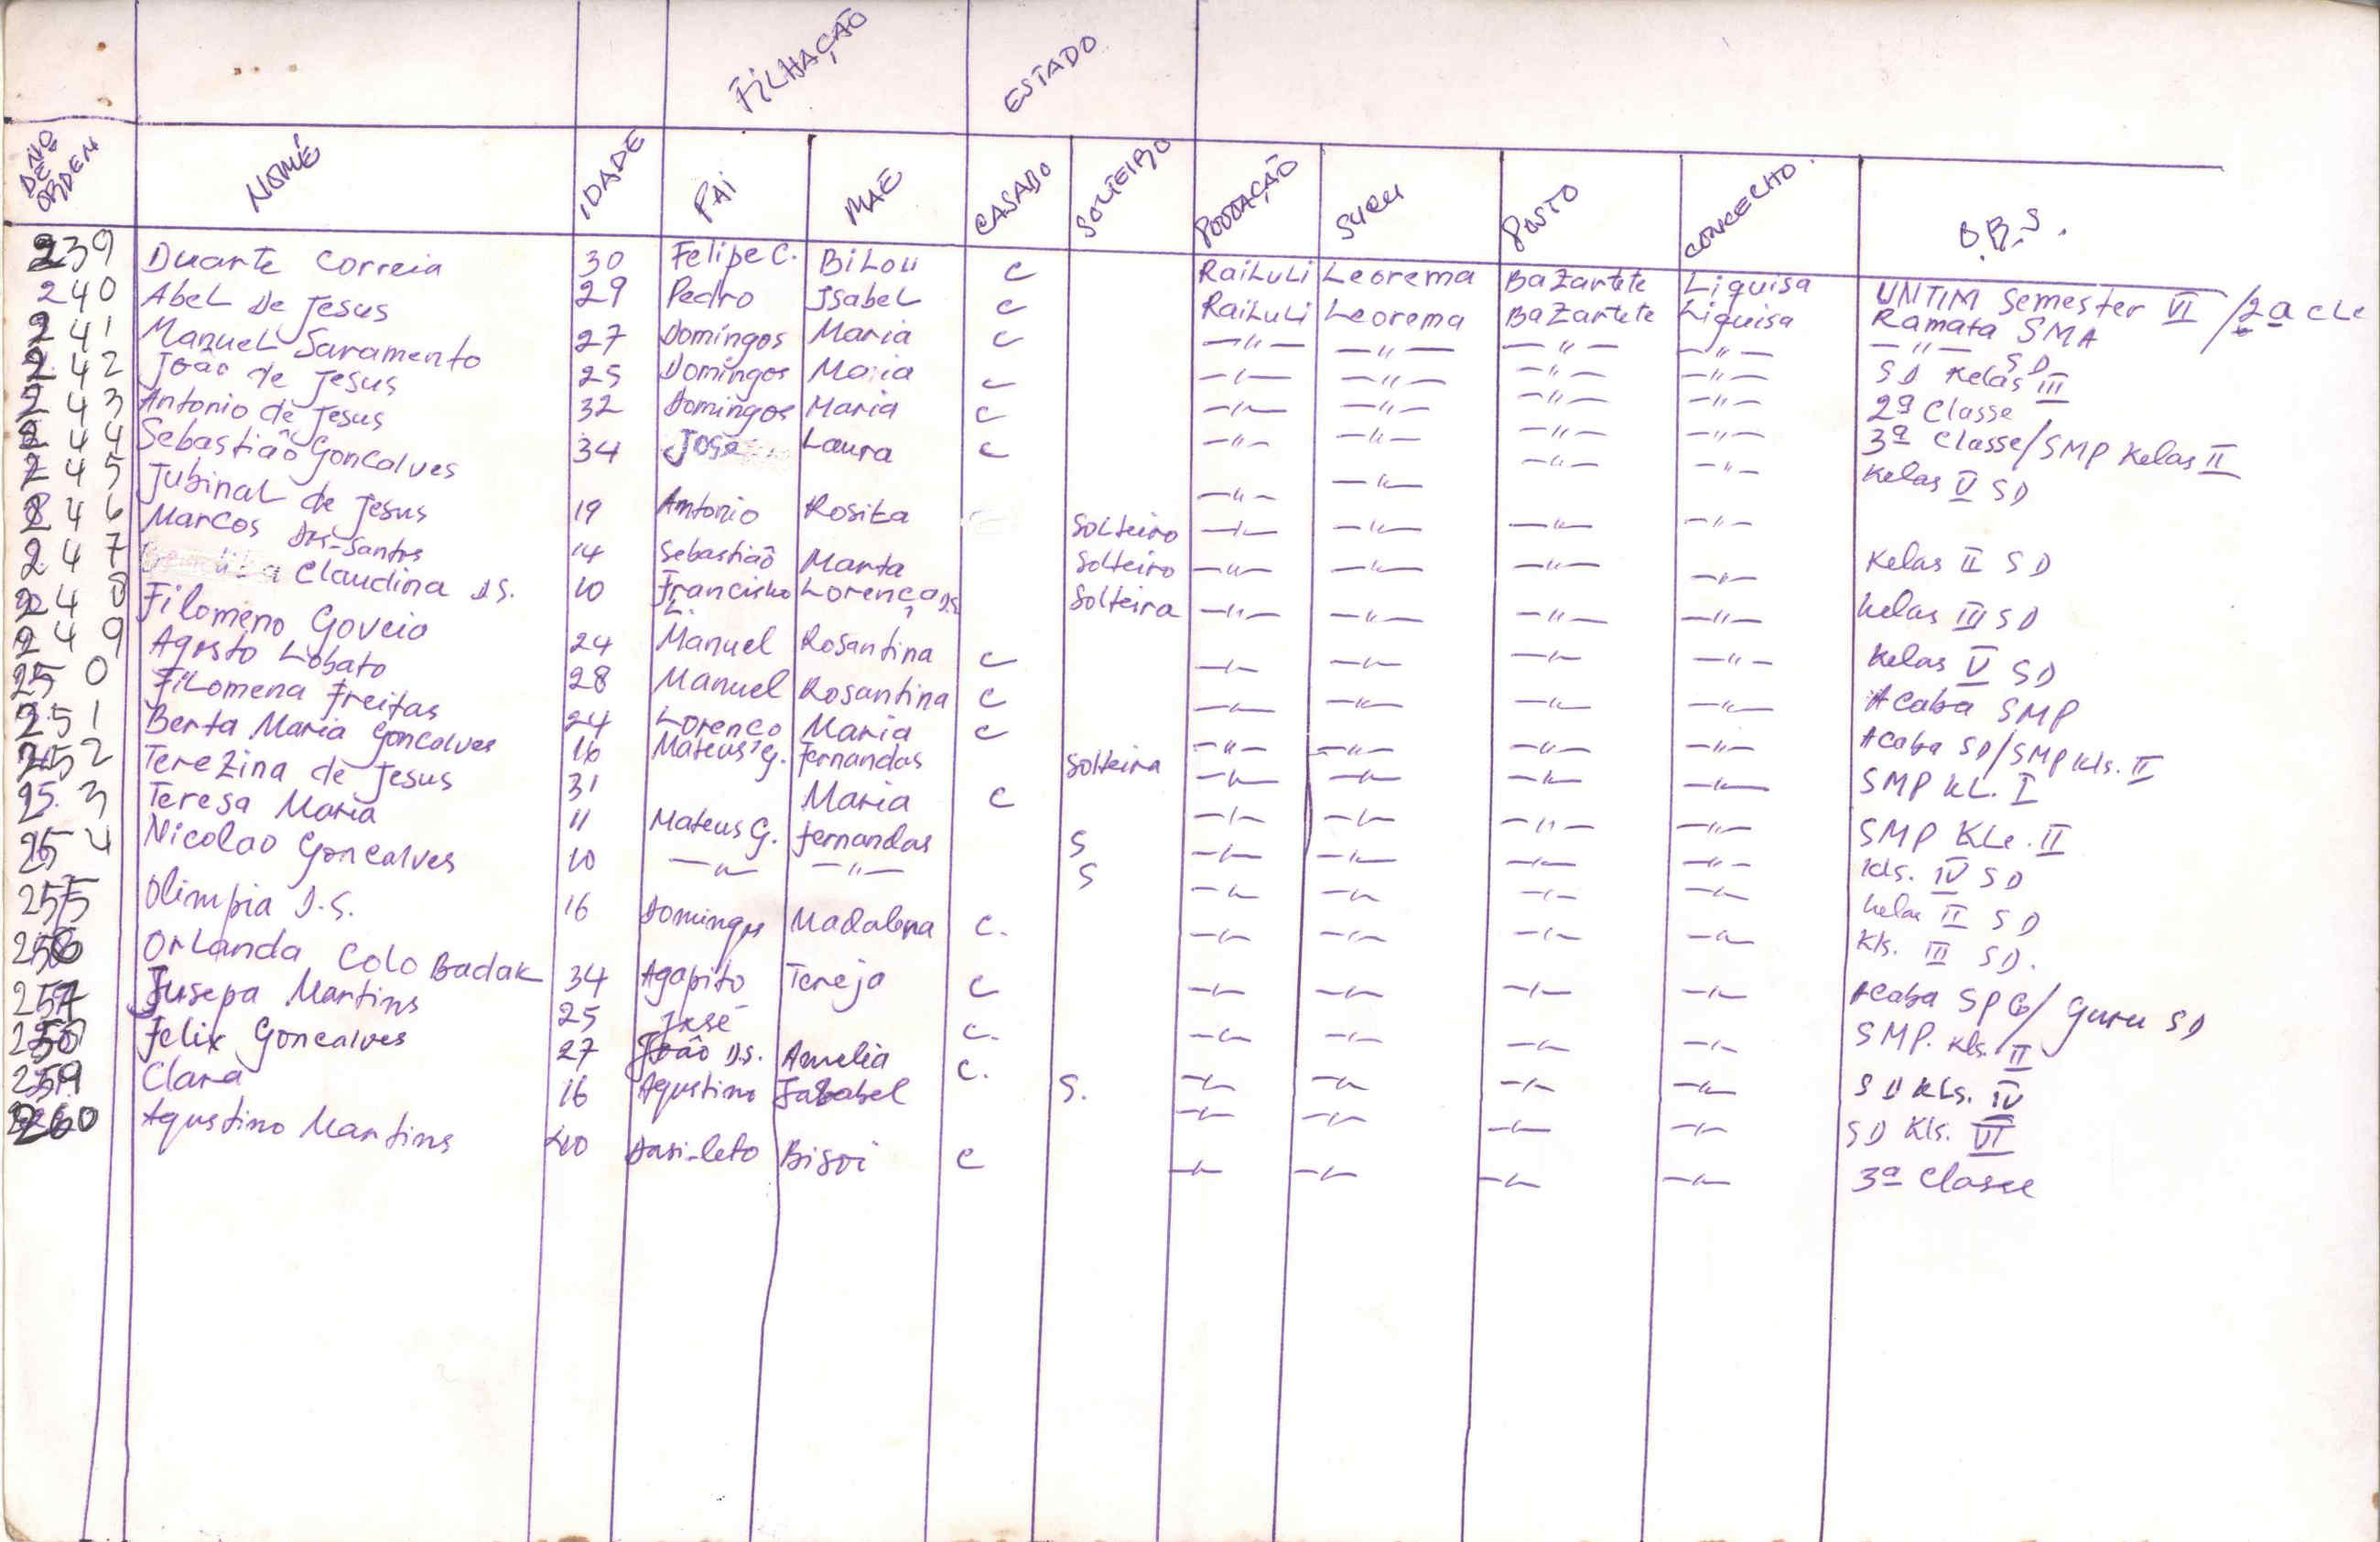 FILHAÇÃO ESTADO
Nº DE ORDEN NOMÉ IDADE PAI MAE CASADO SOLTEIRO POVOAÇÃO SUCU POSTO CONCELHO. O.B.S.
239 Duarte Correia 30 Felipe C. BiLou C RaiLuLi Leorema BaZartete Liquisa UNTIM Semester VI /2a cLe
240 AbeL De Jesus 29 Pedro IsabeL C RaiLuLi Leorema BaZartete Liquisa Ramata SMA
241 ManueL Saramento 27 Domingos Maria C —"— —"— —"— —"— —"— SD
242 João de Jesus 25 Domingos Maria C —"— —"— —"— —"— SD Kelas III
243 Antonio de Jesus 32 Domingos Maria C —"— —"— —"— —"— 2ª Classe
244 Sebastião Goncalves 34 José Laura C —"— —"— —"— —"— 3ª Classe/SMP Kelas II
245 JubinaL de Jesus 19 Antonio Rosita Solteiro —"— —"— —"— —"— Kelas V SD
246 Marcos Dos-Santos 14 Sebastião Marta Solteiro —"— —"— —"— —"— Kelas II SD
247 Claudina D.S. 10 Francisko L. Lorença D.S. Solteira —"— —"— —"— —"— Kelas III SD
248 Filomeno Goveio 24 Manuel Rosantina C —"— —"— —"— —"— Kelas V SD
249 Agosto Lobato 28 Manuel Rosantina C —"— —"— —"— —"— Acaba SMP
250 FiLomena Freitas 24 Lorenco Maria C —"— —"— —"— —"— Acaba SD/SMP Kls. II
251 Berta Maria Goncalves 16 Mateus G. Fernandas Solteira —"— —"— —"— —"— SMP KL. I
252 TereZina de Jesus 31 Maria C —"— —"— —"— —"— SMP KLe. II
253 Teresa Maria 11 Mateus G. Fernandas S —"— —"— —"— —"— Kls. IV SD
254 Nicolao Goncalves 10 —"— —"— S —"— —"— —"— —"— Kelas II SD
255 Olimpia D.S. 16 Domingos Madalena C. —"— —"— —"— —"— Kls. III SD.
256 OrLanda Colo Badak 34 Agapito Tereja C —"— —"— —"— —"— Acaba SPG/ Guru SD
257 Jusepa Martins 25 José C. —"— —"— —"— —"— SMP. Kls. II
258 Felix Goncalves 27 João D.S. Amelia C. —"— —"— —"— —"— SD KLs. IV
259 Clara 16 Agustino S. —"— —"— —"— —"— SD Kls. VI
260 Agustino Martins 40 Dasi-leto Bisoi C —"— —"— —"— —"— 3ª Classe